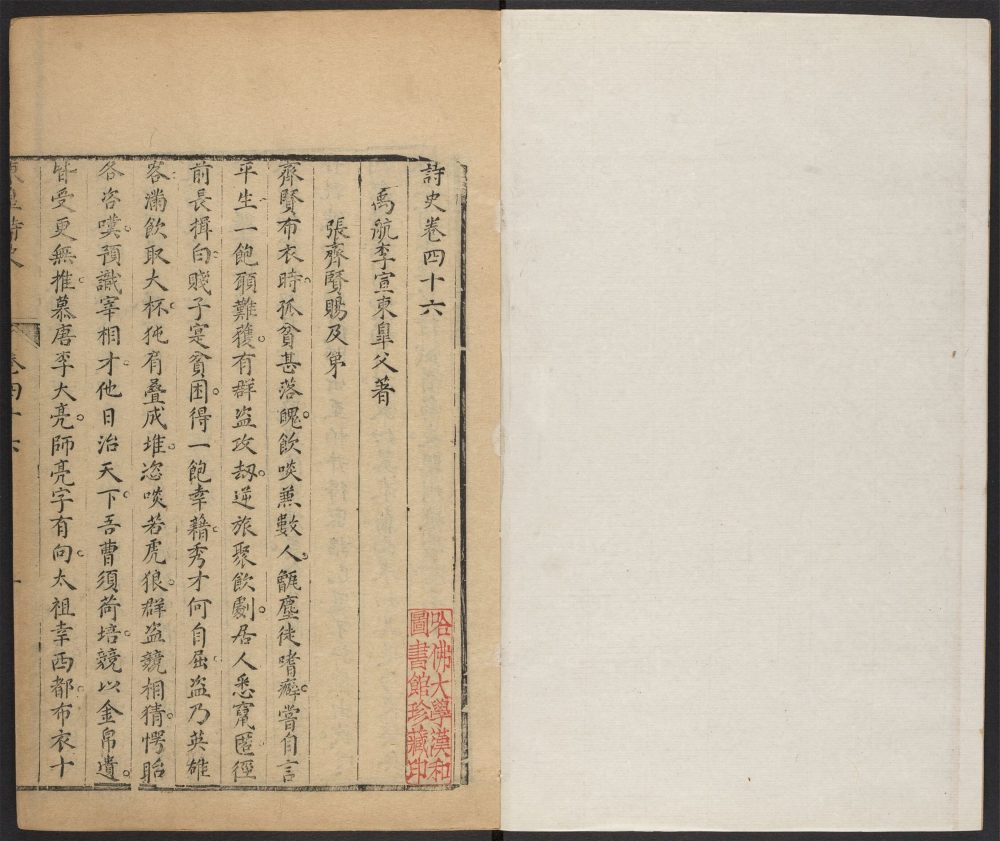 詩史卷四十六
禹航李宣東皐父著
張齊賢賜及第
齊賢布衣時。孤貧甚落魄。飲啖兼數人。甑塵徒嗜癖。嘗自言
平生一飽願難獲。有群盜攻刼逆旅聚飲劇。居人悉竄匿徑
前長揖白賤子寔貧困。得一飽幸籍秀才何自屈。盜乃英雄
客滿飲取大杯。㹠肩叠成堆。恣啖若虎狼。群盜競相猜。愕眙
各咨嘆。預識宰相才。他日治天下。吾曹須荷培。競以金帛遺。
皆受更無推。慕唐李大亮。師亮字有向。太祖幸西都。布衣十
卷四十六
一
哈佛大學漢和
圖書館珍藏印